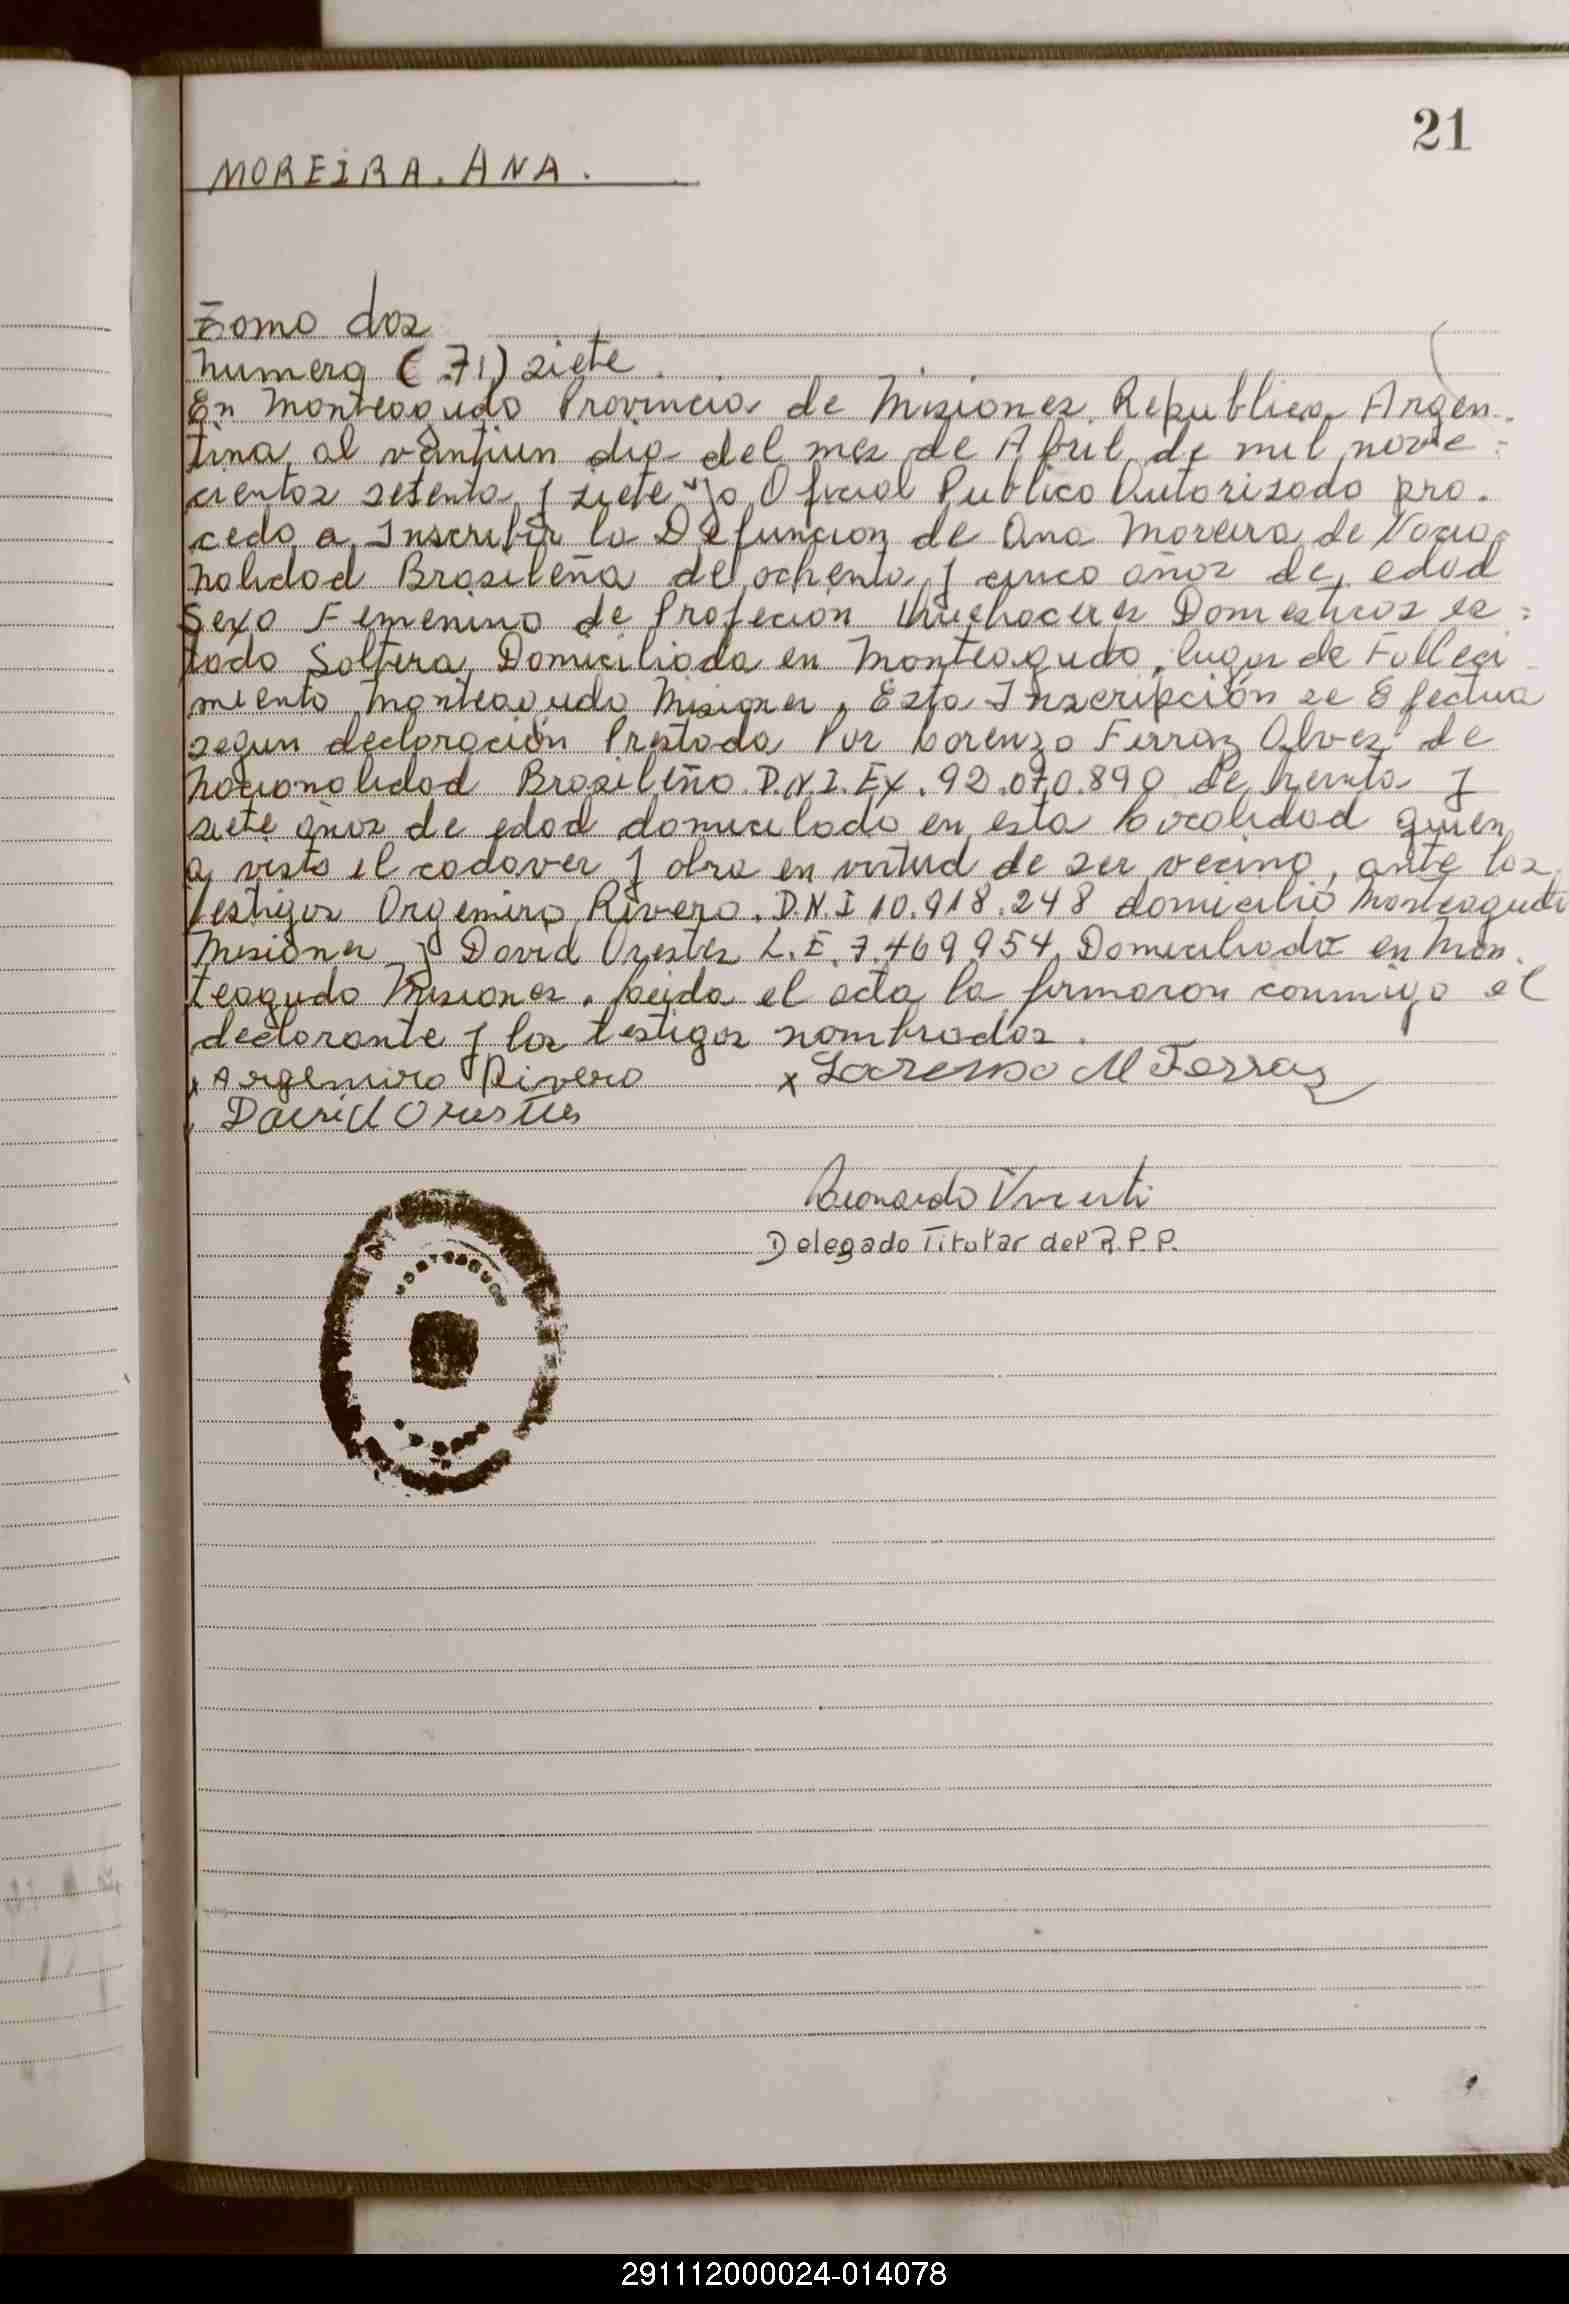 21
MOREIRA. ANA.
Tomo dos
Numero (71) siete
En Monteagudo Provincia de Misiones Republica Argen-
tina al vantiun dia del mes de Abril de mil nove=
cientos setenta y siete yo Oficial Publico Autorizado pro-
cedo a Inscribir la Defuncion de Ana Moreira de Nacio=
nalidad Brasileña de ochenta y cinco años de edad
Sexo Femenino de Profecion Quehaceres Domesticos es=
tado Soltera Domiciliada en Monteagudo, lugar de Falleci
miento Monteagudo Misiones. Esta Inscripción se Efectua
segun declaración Prestada Por Lorenzo Ferraz Alvez de
nacionalidad Brasileño. D.N.I. Ex. 92.070.890 de treinta y
siete años de edad domicilado en esta Localidad quien
a visto el cadaver y obra en virtud de ser vecino, ante los
testigos Orgemiro Rivero. D.N.I 10.918.248 domicilio Monteagudo
Misiones y David Orestes L.E. 7.469.954 Domiciliado en Mon
teagudo Misiones. Leida el acta la firmaron conmigo el
declarante y los testigos nombrados.
x Argemiro Rivero x Lorenso M Ferraz
David Orestes
Leonardo
Delegado Titular del R.P.P.
MONTEAGUDO
291112000024-014078